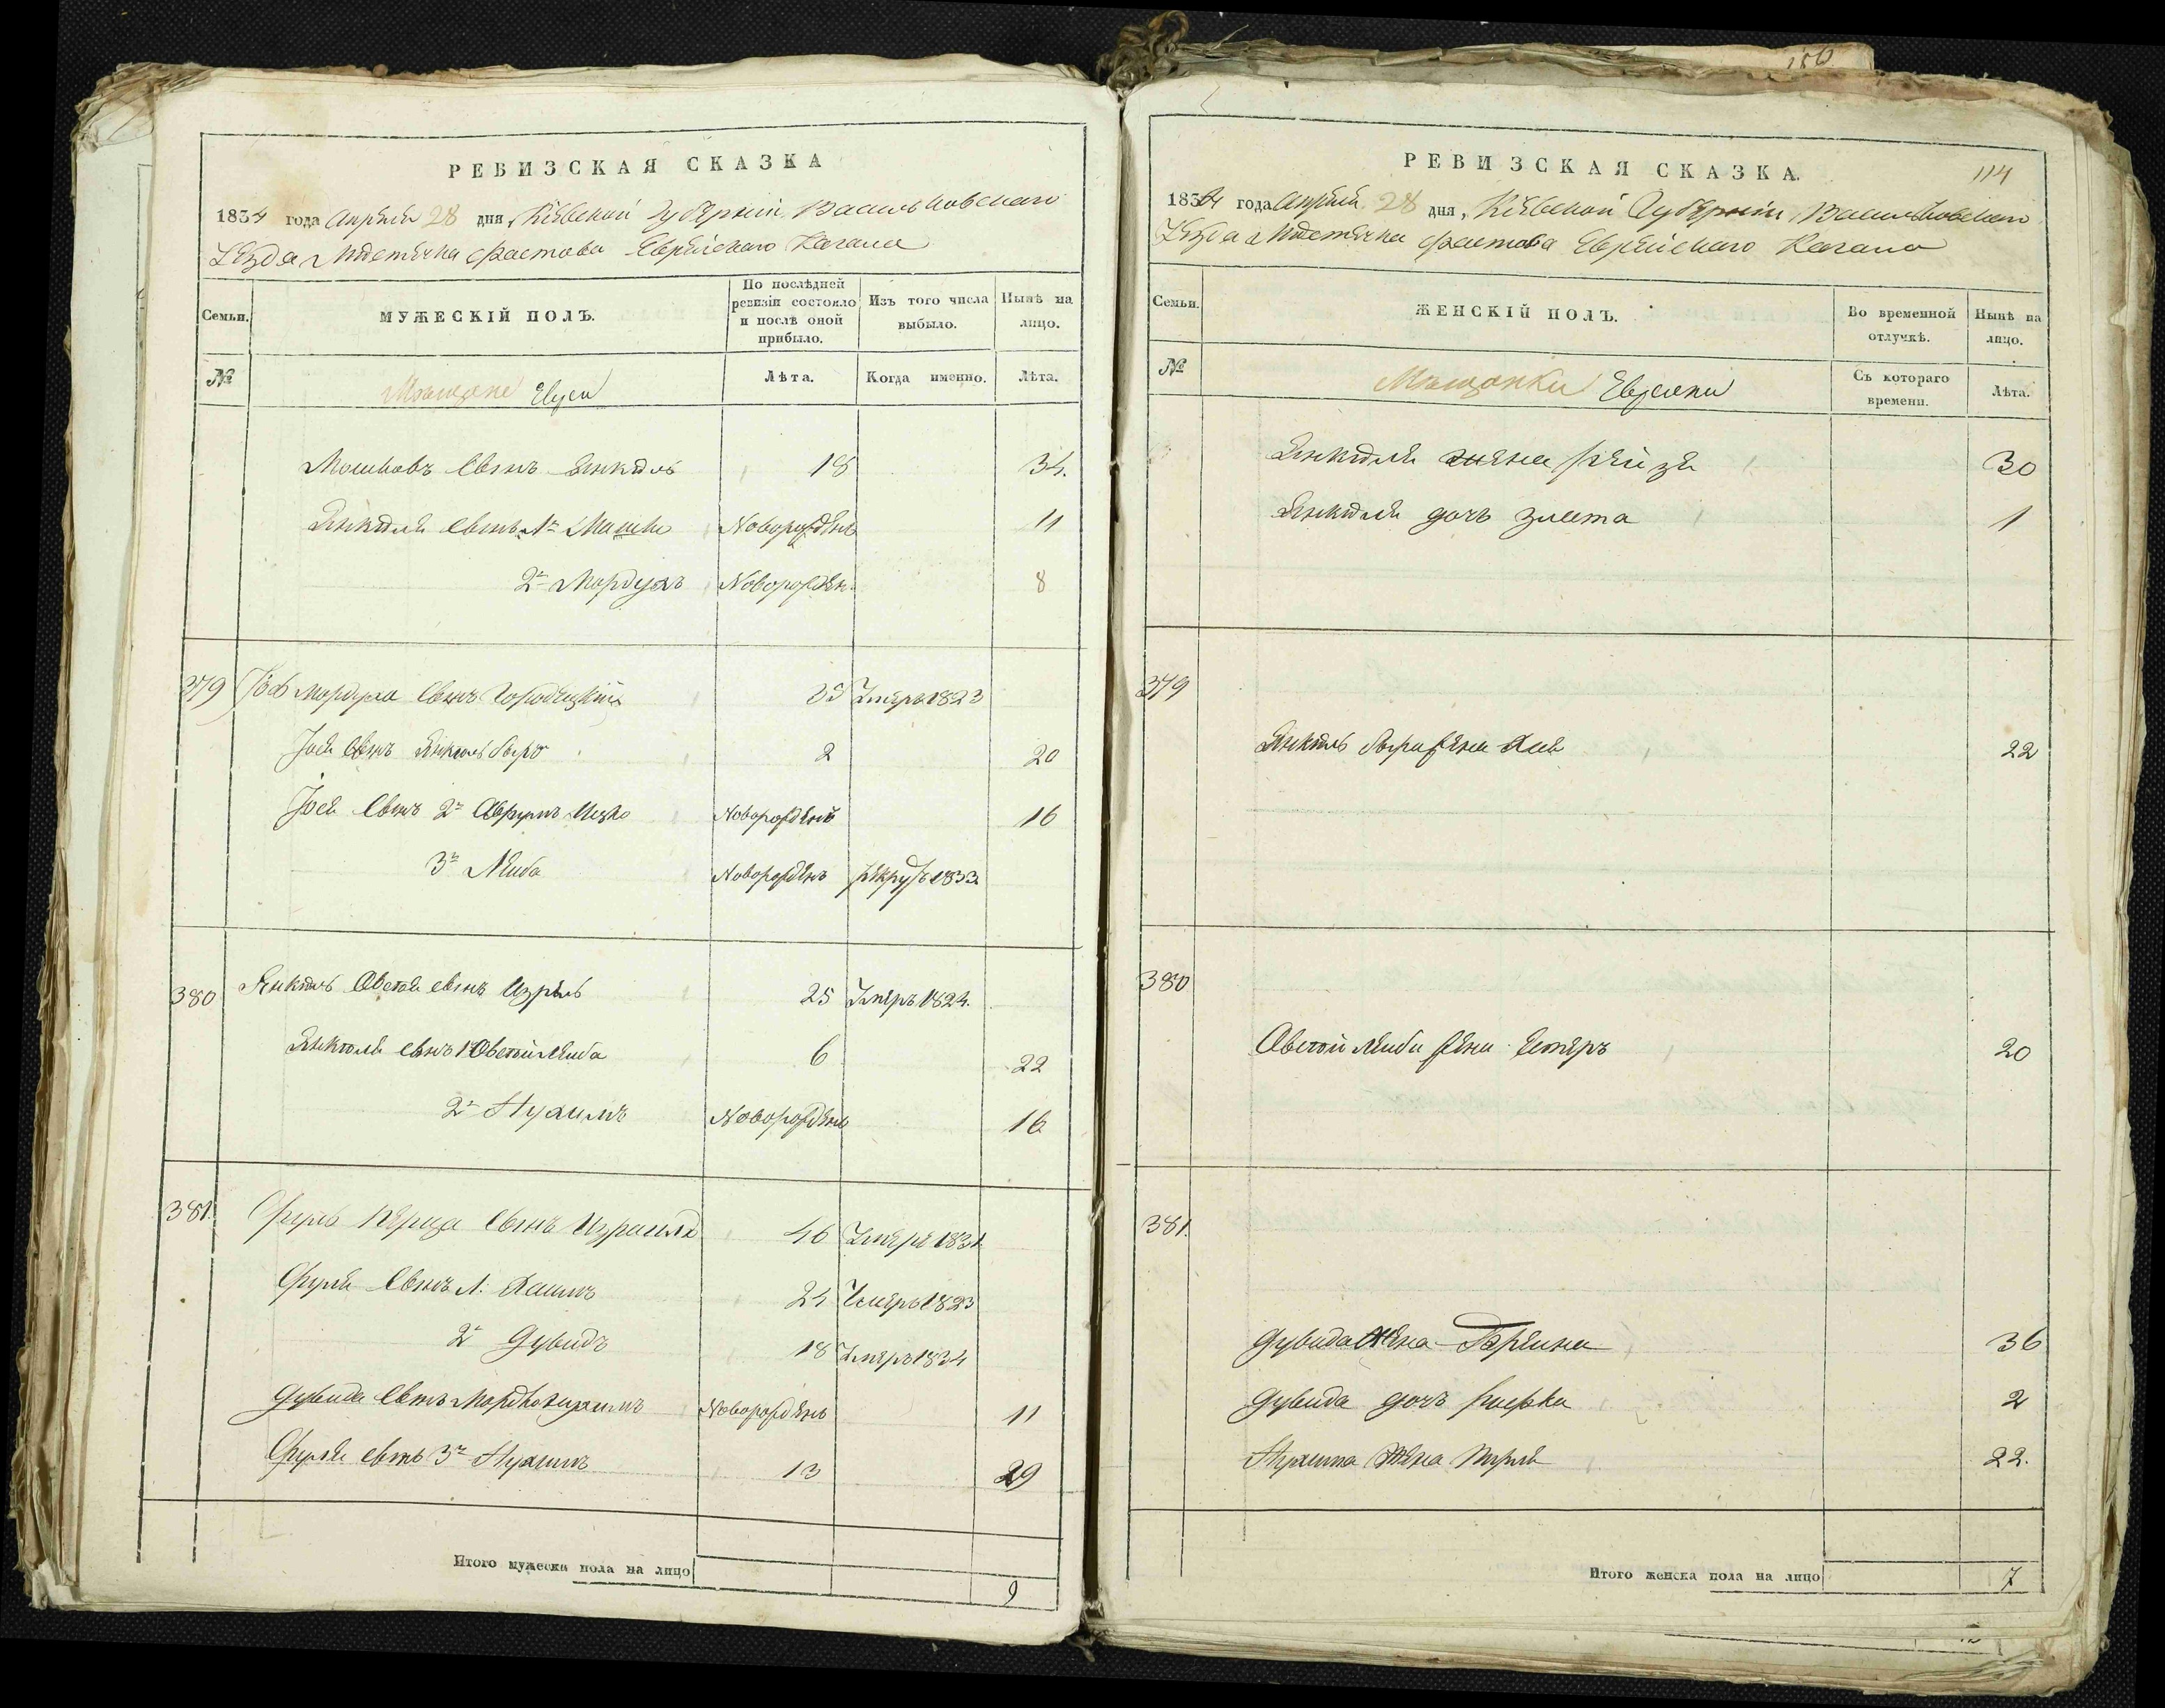 РЕВИЗСКАЯ СКАЗКА
1834 года Апреля 28 дня, Кіевской Губерніи Васильковского
Уезда Местечка Фастова Еврейского Кагала
Семьи.
МУЖЕСКІЙ ПОЛЪ.
По послѣдней ревизіи состояло и послѣ оной прибыло.
Изъ того числа выбыло.
Нынѣ на лицо.
№
Мещане Евреи
Лѣта.
Когда именно.
Лѣта.
Мошковъ сынъ Янкель 18 34.
Янкеля сынъ 1й Мошко Новорожденъ 11
2й Мордухъ Новорожден. 8
379 Мордуха сынъ Городецкий Умеръ 1823
Іося сынъ Янкель 2 20
Іося сынъ 2й Аврумъ Ицко Новорожденъ 16
3й Лейба Новорожденъ рекрут 1833
380 Янкель Овсей сынъ Израель 25 Умеръ 1824.
Янкеля сынъ 1й Овсей Лейба 6 22
2й Нухимъ Новорожденъ 16
381. Сруль Перца сынъ 46 Умеръ 1831.
Сруля сынъ 1. Хаимъ 24 Умеръ 1823
2й Дувидъ 18 Умеръ 1834
Дувида сынъ Новорожденъ 11
Сруля сынъ 3й Нухимъ 13 29
Итого мужеска пола на лицо 9
РЕВИЗСКАЯ СКАЗКА.
114
1834 года Апреля 28 дня, Кіевской Губерніи Васильковского
Уезда Местечка Фастова Еврейского Кагала
Семьи.
ЖЕНСКІЙ ПОЛЪ.
Во временной отлучкѣ.
Нынѣ на лицо.
№
Мещанки Еврейки
Съ котораго времени.
Лѣта.
Янкеля жена Рейзя 30
Янкеля дочь Злота 1
379
Янкель жена Хая 22
380
Овсей Лейби жена Естеръ 20
381.
Дувида жена 36
Дувида дочь 2
Нухима жена Перля 22.
Итого женска пола на лицо 7